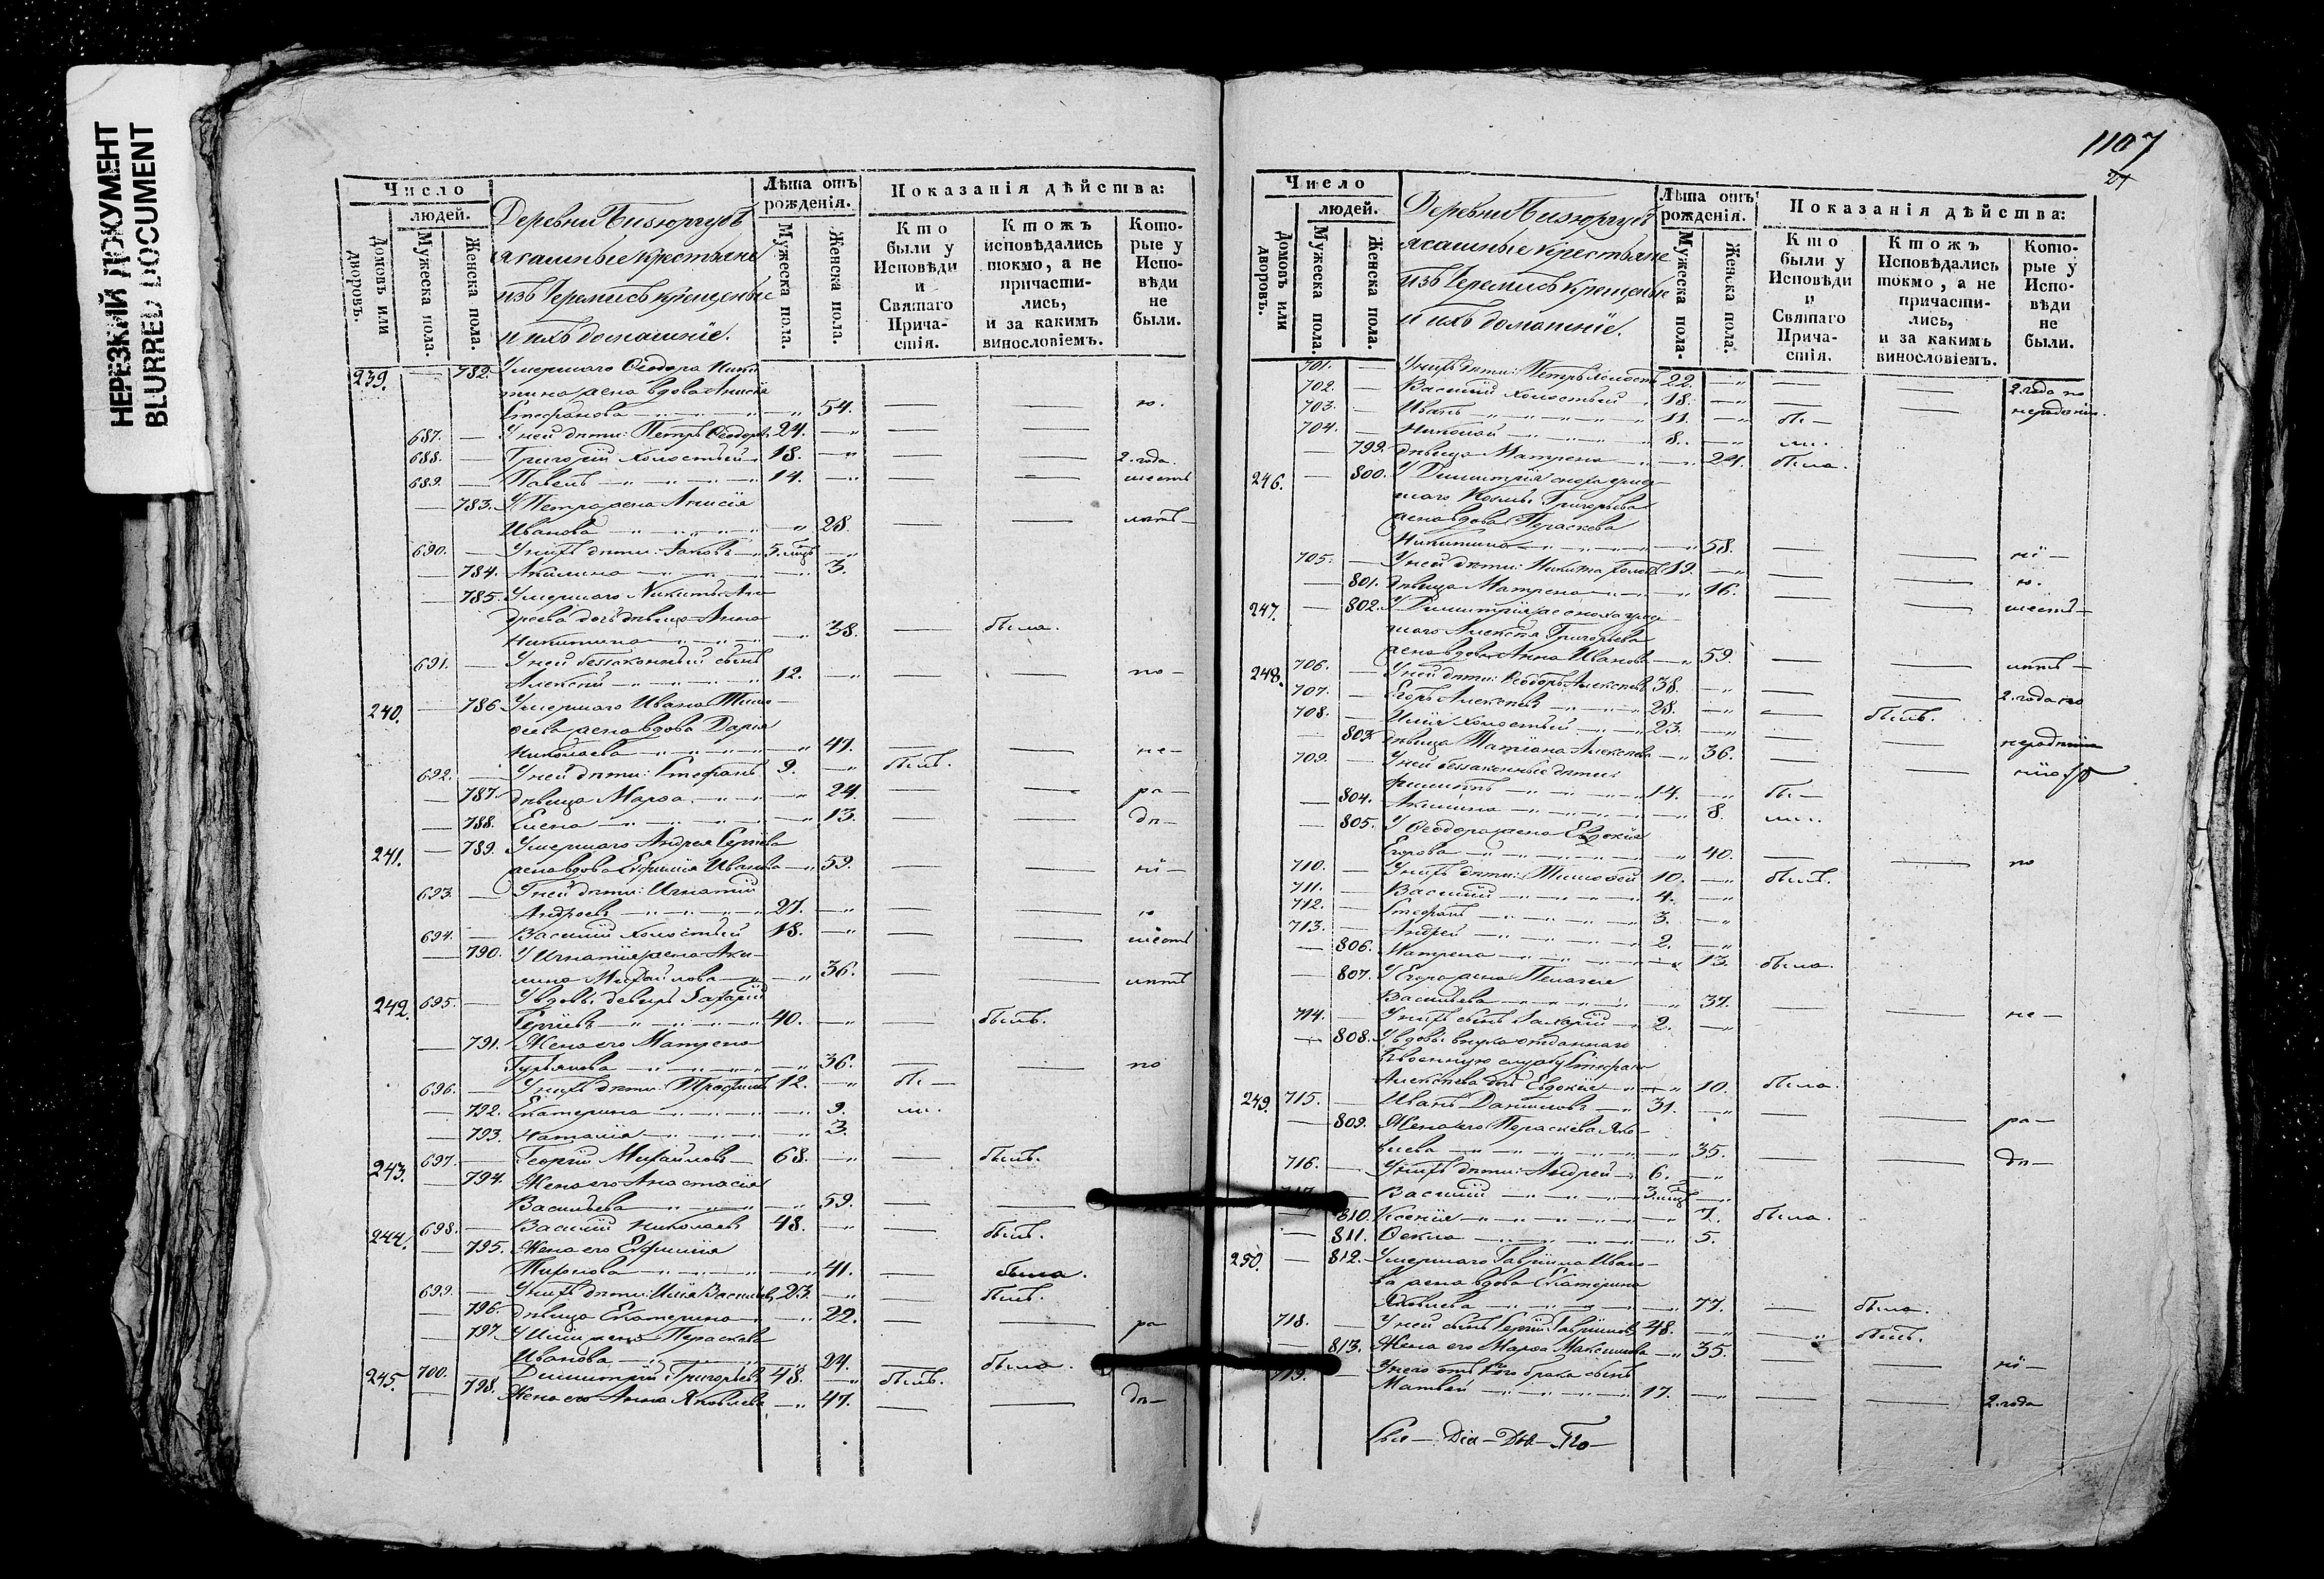 НЕРЕЗКИЙ ДОКУМЕНТ
BLURRED DOCUMENT
Число
людей.
Домовъ или дворовъ.
Мужеска пола.
Женска пола.
Деревни
ясашные крестьяне
изъ Черемисъ крещеные
и ихъ домашніе.
Лѣта отъ рожденія.
Мужеска пола.
Женска пола.
Показанія дѣйства:
Кто были у Исповѣди и Святаго Причастія.
Ктожъ исповѣдались токмо, а не причастились, и за какимъ винословіемъ.
Которые у Исповѣди не были.
239. — 782. Умершаго Ѳеодора Ники
тина жена вдова Анисія
Стефанова 54. — — ю.
687. — У ней дѣти: Петръ Ѳеодоровъ 24. — —
688. — Григорій холостый 18. — — 2. года
689. — Павелъ 14. — — шесть
— 783. У Петра жена Анисія
Иванова 28. — — лѣтъ
690. — У нихъ дѣти: Іаковъ 5. мцъ
— 784. Акилина 3.
— 785. Умершаго Никиты Ан
дреева дочь дѣвица Анна
Никитина 38. — была.
691. — У ней беззаконный сынъ
Алексѣй 12. по —
240. — 786 Умершаго Ивана Тимо
ѳеева жена вдова Дарія
Николаева 47. — — не —
692. — У ней дѣти: Стефанъ 9. былъ.
— 787. дѣвица Марѳа 24. — — ра —
— 788. Елена 13. — — дѣ —
241. — 789. Умершаго Андрея Сергѣева
жена вдова Евфимія Иванова 59. — — нї —
693. — У ней дѣти: Игнатій
Андреевъ 27. — — ю
694. — Василій холостый 18. — — шесть
— 790. У Игнатія жена Аки
лина Михайлова 36. — — лѣтъ
242. 695. — У вдовы деверь Захарій
Сергіевъ 40. — былъ.
— 791. Жена его Матрена
Гурьянова 36. — — по
696. — У нихъ дѣти: Трофимъ 12. бы —
— 792. Екатерина 9. ли.
— 793. Наталія 3.
243. 697. — Георгій Михайловъ 68. — былъ.
— 794. Жена его Анастасія
Васильева 59. — —
244. 698. — Василій Николаевъ 48. — былъ.
— 795. Жена его Евфимія
Тихонова 41. — была.
699. — У нихъ дѣти: Илія Васильевъ 23. — былъ.
— 796. дѣвица Екатерина 22. — — ра
— 797 У Иліи жена Параскева
Иванова 24. — была.
245. 700. Димитрій Григорьевъ 48. былъ.
798. Жена его Анна Яковлева 47. — — дѣ —
1107
Число
людей.
Домовъ или дворовъ.
Мужеска пола.
Женска пола.
Деревни
ясашные крестьяне
изъ Черемисъ крещеные
и ихъ домашніе.
Лѣта отъ рожденія.
Мужеска пола.
Женска пола.
Показанія дѣйства:
Кто были у Исповѣди и Святаго Причастія.
Ктожъ Исповѣдались токмо, а не причастились, и за какимъ винословіемъ.
Которые у Исповѣди не были.
701. — У нихъ дѣти: Петръ холостъ 22. — — 2. года по
702. — Василій холостый 18. — — нерадѣнію.
703. — Иванъ 11. бы —
704. — Николай 8. ли.
— 799. дѣвица Матрена 24. была.
246. — 800. У Димитрія сноха умер
шаго Козмы Григорьева
жена вдова Параскева
Никитина 58. — — нї —
705. — У ней дѣти: Никита холост. 19. — — ю.
— 801. дѣвица Матрена 16. — — шесть —
247. — 802. У Димитрія же сноха умер
шаго Алексѣя Григорьева
жена вдова Анна Иванова 59. — — лѣтъ —
248. 706. — У ней дѣти: Ѳеодоръ Алексѣевъ 38. — — 2. года по
707. — Егоръ Алексѣевъ 28. — былъ.
708. — Илія холостый 23. — — нерадѣнію
— 803. дѣвица Татіана Алексѣева 36. — —
709. — У ней беззаконные дѣти:
Филиппъ 14. бы —
— 804. Акилина 8. ли.
— 805. У Ѳеодора жена Евдокія
Егорова 40. — — по
710. — У нихъ дѣти: Тимоѳей 10. былъ.
711. — Василій 4.
712. — Стефанъ 3.
713. — Андрей 2.
— 806. Матрена 13. была.
— 807. У Егора жена Пелагея
Васильева 37. — — не —
714. — У нихъ сынъ Захарій 2.
— 808. У вдовы внука отданнаго
въ военную службу Стефана
Алексѣева дочь Евдокія 10. была.
249. 715. — Иванъ Даниловъ 31. — — ра —
— 809. Жена его Параскева Яко
влева 35. — — дѣ —
716. — У нихъ дѣти: Андрей 6.
717. — Василій 3. мцъ
— 810. Ксенія 7. была.
— 811. Ѳекла 5.
250. — 812. Умершаго Гавріила Ивано
ва жена вдова Екатерина
Яковлева 77. — была.
718. — У ней сынъ Сергій Гавриловъ 48. — былъ.
— 813. Жена его Марѳа Максимова 35. — — нї —
719. — У него отъ 1го брака сынъ
Матвей 17. — — 2. года
Свя — Діа — Дья — По —